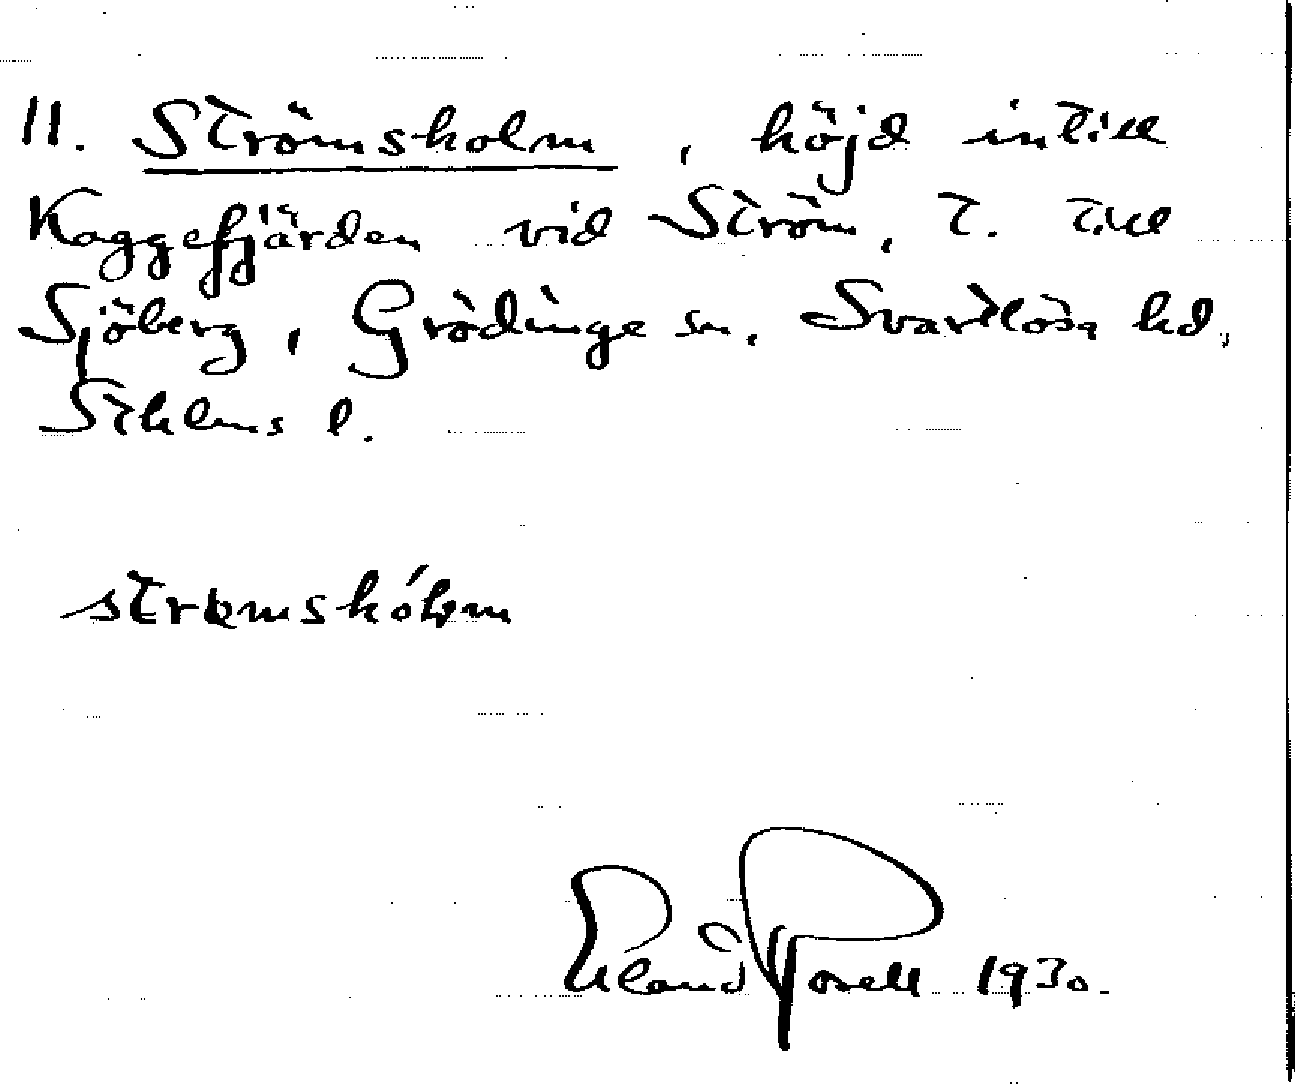 11. Strömsholm, höjd intill
Kaggefjärden vid Ström, t. till
Sjöberg, Grödinge sn, Svartlösa hd,
Sthlms l.
Erland Rosell 1930.